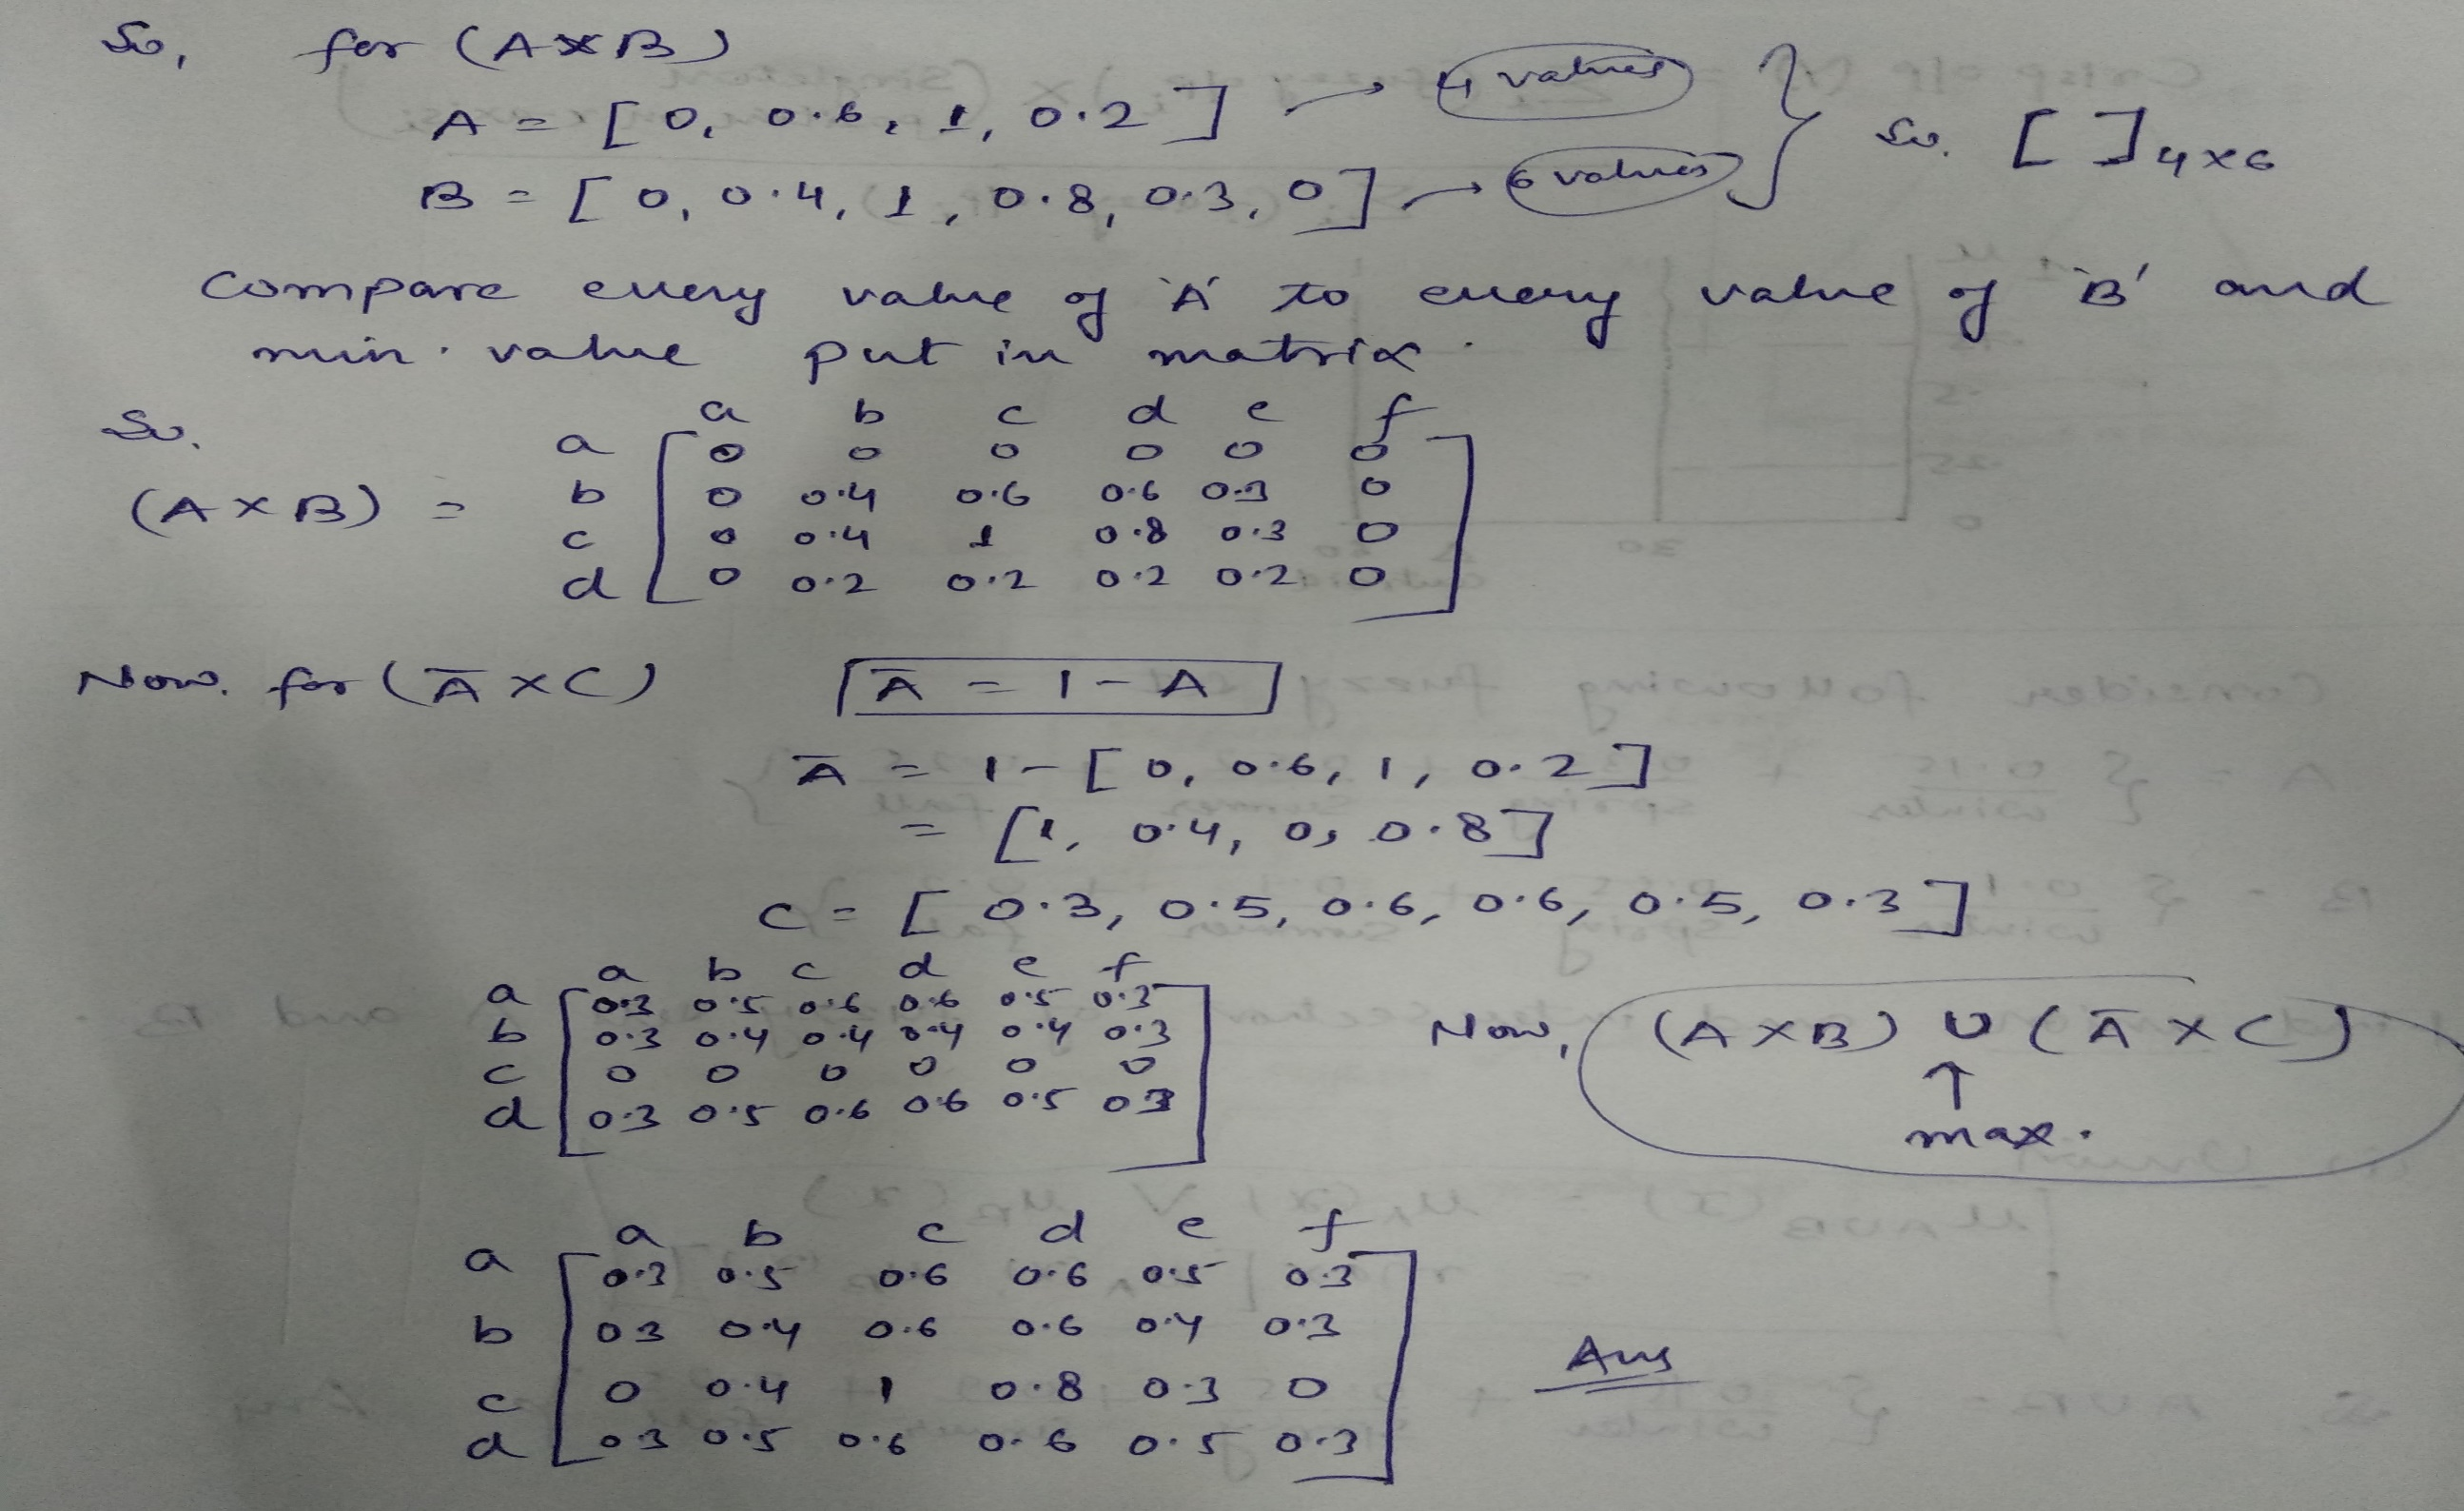 So, for (A×B)
A = [0, 0.6, 1, 0.2] → 4 values
B = [0, 0.4, 1, 0.8, 0.3, 0] → 6 values } So. [ ]4×6
Compare every value of 'A' to every value of 'B' and
min. value put in matrix.
So.
a b c d e f
a 0 0 0 0 0 0
(A×B) = b 0 0.4 0.6 0.6 0.3 0
c 0 0.4 1 0.8 0.3 0
d 0 0.2 0.2 0.2 0.2 0
Now. for (Ā×C) Ā = 1-A
Ā = 1-[0, 0.6, 1, 0.2]
= [1, 0.4, 0, 0.8]
C = [0.3, 0.5, 0.6, 0.6, 0.5, 0.3]
a b c d e f
a 0.3 0.5 0.6 0.6 0.5 0.3
b 0.3 0.4 0.4 0.4 0.4 0.3
c 0 0 0 0 0 0
d 0.3 0.5 0.6 0.6 0.5 0.3
Now, (A×B) ∪ (Ā×C)
↑
max.
a b c d e f
a 0.3 0.5 0.6 0.6 0.5 0.3
b 0.3 0.4 0.6 0.6 0.4 0.3
c 0 0.4 1 0.8 0.3 0
d 0.3 0.5 0.6 0.6 0.5 0.3
Ans